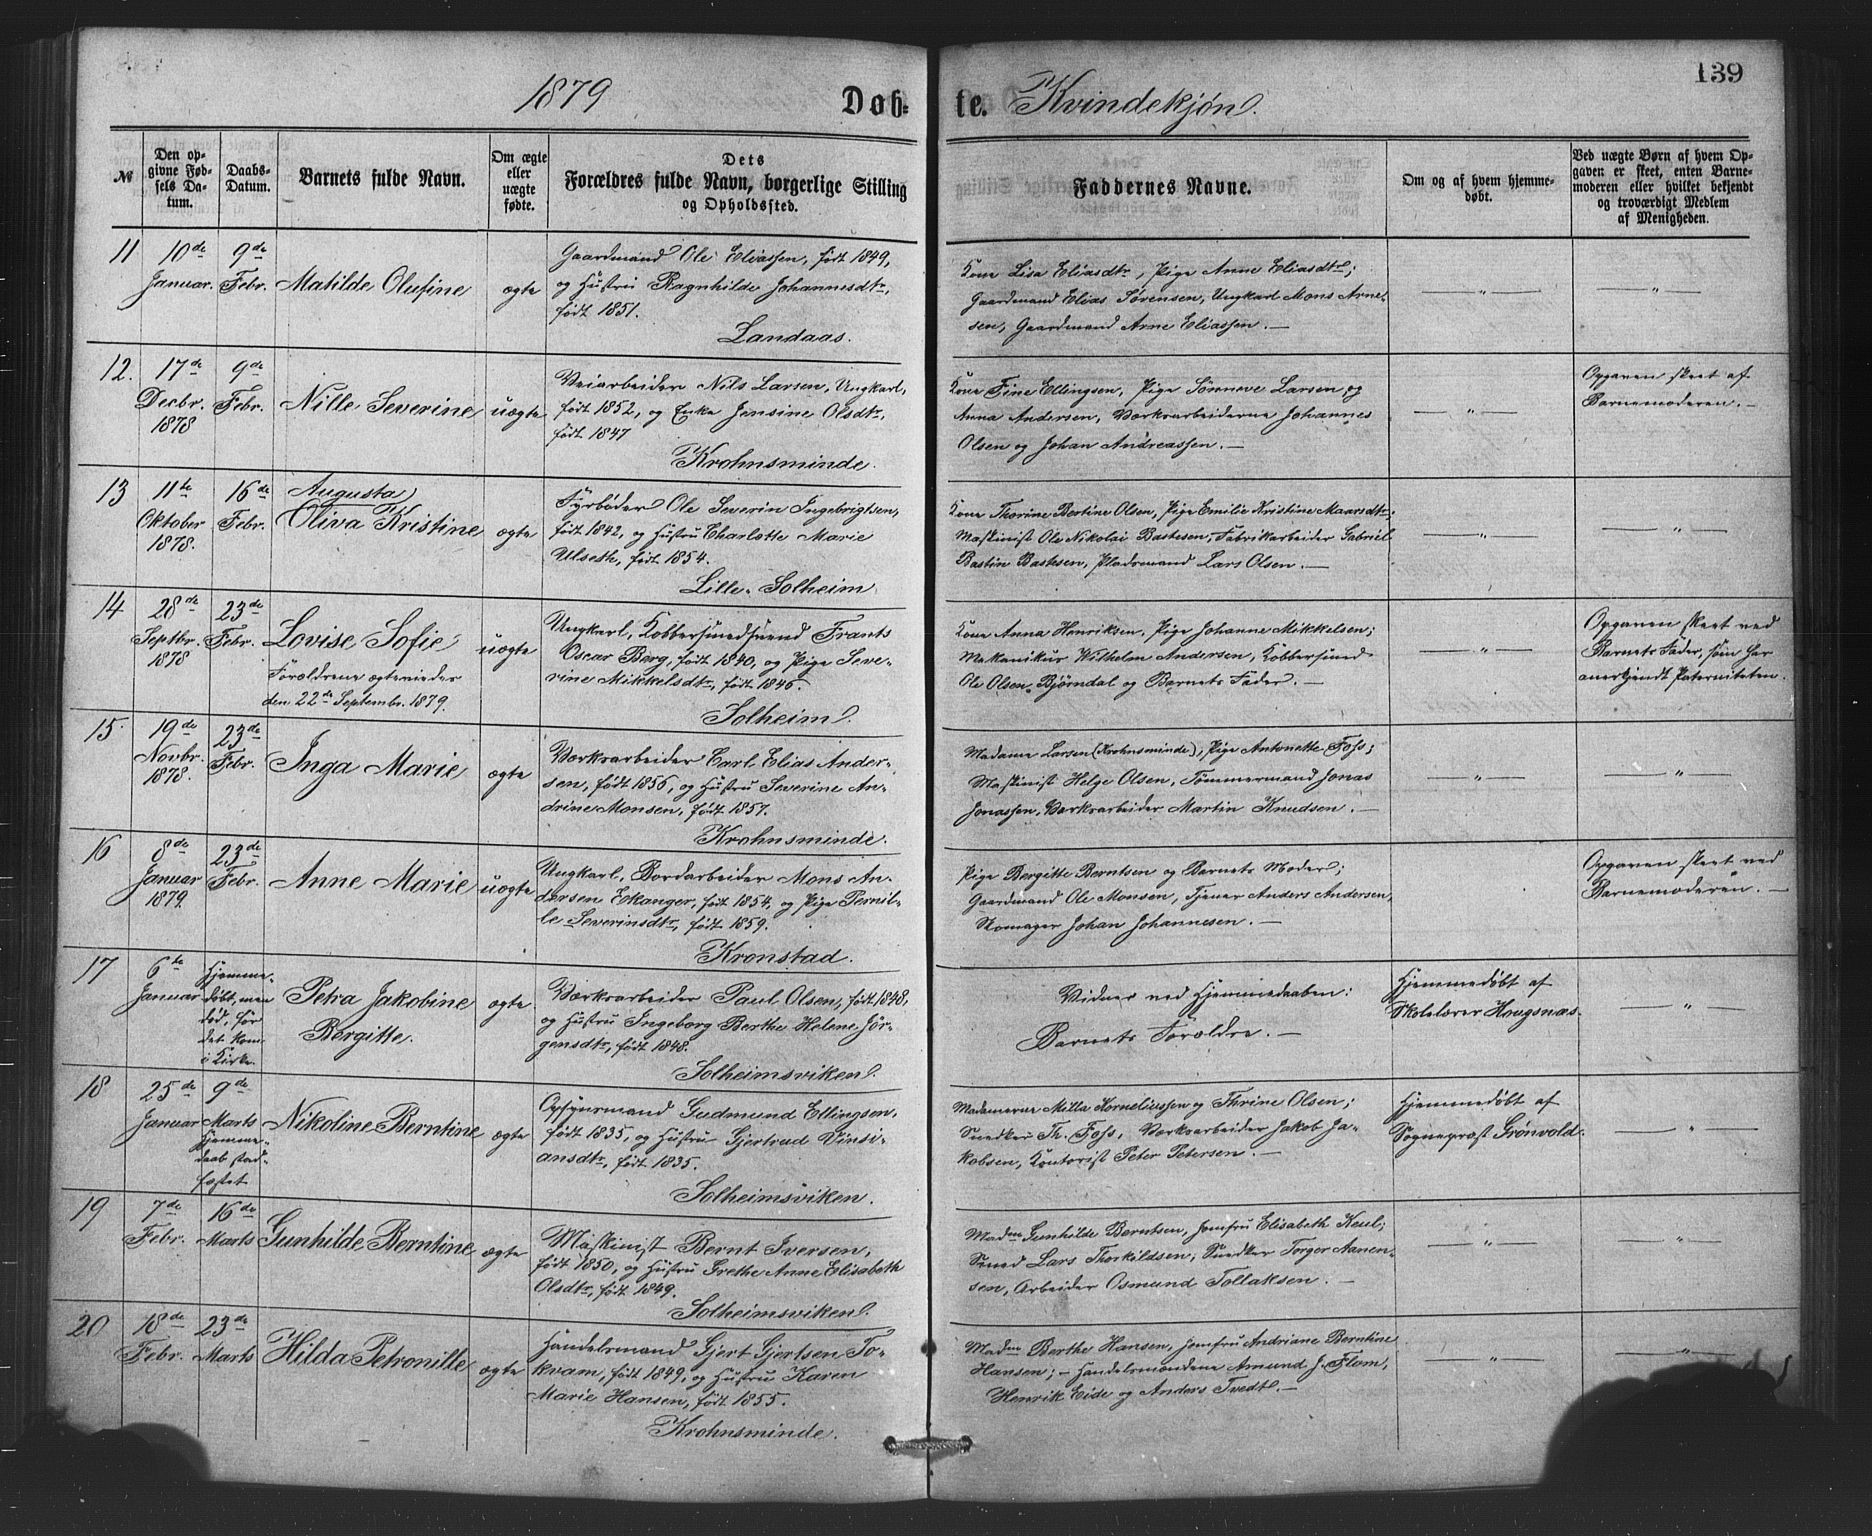 139
1879 Døb-
te. Kvindekjøn.
№
Den op-
givne Fød-
sels Da-
tum.
Daabs-
Datum.
Barnets fulde Navn.
Om ægte
eller
uægte
fødte.
Dets
Forældres fulde Navn, borgerlige Stilling
og Opholdssted.
Faddernes Navne.
Om og af hvem hjemme-
døbt.
Ved uægte Børn af hvem Op-
gaven er skeet, enten Barne-
moderen eller hvilket bekjendt
og troværdigt Medlem
af Menigheden.
11
10de
Januar.
9de
Febr.
Matilde Olufine
ægte
Gaardmand Ole Eliassen, født 1849,
og Hustru Ragnhilde Johannesdtr,
født 1851.
Landaas.
Kone Lisa Eliasdtr, Pige Anne Eliasdtr;
Gaardmand Elias Sørensen, Ungkarl Mons Arne-
sen, Gaardmand Arne Eliassen. —
— " —
— " —
12.
17de
Decbr.
1878
9de
Febr.
Nille Severine
uægte
Veiarbeider Nils Larsen, Ungkarl,
født 1852, og Enke Jensine Olsdtr,
født 1847
Krohnsminde.
Kone Fine Ellingsen, Pige Sønneve Larsen og
Anna Andersen, Værksarbeiderne Johannes
Olsen og Johan Andreassen. —
— " —
Opgaven skeet af
Barnemoderen. —
13
11te
Oktober
1878.
16de
Febr.
Augusta
Oliva Kristine
ægte
Fyrbøder Ole Severin Ingebrigtsen,
født 1842, og Hustru Charlotte Marie
Ulseth, født 1854.
Lille-Solheim
Kone Thorine Bertine Olsen, Pige Emilie Kristine Maarsdtr;
Maskinist Ole Nikolai Bastesen, Fabrikarbeider Gabriel
Bastin Bastesen, Pladsmand Lars Olsen. —
— " —
— " —
14
28de
Septbr.
1878
23de
Febr.
Lovise Sofie
Forældrene ægtevieder
den 22de Septembr. 1879.
uægte
Ungkarl, Kobbersmedsvend Frants
Oscar Berg, født 1840, og Pige Seve-
rine Mikkelsdtr, født 1846.
Solheim.
Kone Anna Henriksen, Pige Johanne Mikkelsen;
Mekanikus Wilhelm Andersen, Kobbersmed
Ole Olsen Bjørndal og Barnets Fader. —
— " —
Opgaven skeet ved
Barnets Fader, som har
anerkjendt Paterniteten.
15.
19de
Novbr.
1878
23de
Febr.
Inga Marie
ægte
Værksarbeider Carl Elias Ander-
sen, født 1856, og Hustru Severine An-
drine Monsen, født 1857.
Krohnsminde.
Madame Larsen (Krohnsminde), Pige Antonette Foss;
Maskinist Helge Olsen, Tømmermand Jonas
Jonassen, Værksarbeider Martin Knudsen. —
— " —
— " —
16
8de
Januar
1879.
23de
Febr.
Anne Marie
uægte
Ungkarl, Bordarbeider Mons An-
dersen Ekanger, født 1854, og Pige Pernil-
le Severinsdtr, født 1859.
Kronstad.
Pige Bergitte Berntsen og Barnets Moder;
Gaardmand Ole Monsen, Tjener Anders Andersen,
Skomager Johan Johannesen. —
Opgaven skeet ved
Barnemoderen. —
17
6te
Januar
Hjemme-
døbt, men
død, før
det kom
i Kirke.
Petra Jakobine
Bergitte.
ægte
Værksarbeider Paul Olsen, født 1848,
og Hustru Ingeborg Berthe Helene Jør-
gensdtr, født 1848.
Solheimsviken.
Vidner ved Hjemmedaaben:
Barnets Forældre. —
Hjemmedøbt af
Skolelærer Hougsnæs.
— " —
18
25de
Januar
9de
Marts
Hjemme-
daab stad-
fæstet
Nikoline Berntine
ægte
Opsynsmand Gudmund Ellingsen,
født 1835, og Hustru Gjertrud Vinsi-
ansdtr, født 1835.
Solheimsviken.
Madamerne Milla Korneliussen og Thrine Olsen;
Snedker Th. Foss, Værksarbeider Jakob Ja-
kobsen, Kontorist Peter Petersen. —
Hjemmedøbt af
Sogneprest Grønvold.
— " —
19
7de
Febr.
16de
Marts
Gunhilde Berntine
ægte
Maskinist Bernt Iversen,
født 1850, og Hustru Grethe Anne Elisabeth
Olsdtr, født 1849.
Solheimsviken.
Madm Gunhilde Berntsen, Jomfru Elisabeth Keul;
Smed Lars Thorkildsen, Snedker Torger Aanen-
sen, Arbeider Osmund Tollaksen. —
— " —
— " —
20
18de
Febr.
23de
Marts
Hilda Petronille
ægte
Handelsmand Gjert Gjertsen To-
kvam, født 1849, og Hustru Karen
Marie Hansen, født 1855.
Krohnsminde.
Madm Berthe Hansen, Jomfru Andriane Berntine
Hansen; — Handelsmændene Amund J. Flom,
Henrik Eide og Anders Tvedt. —
— " —
— " —